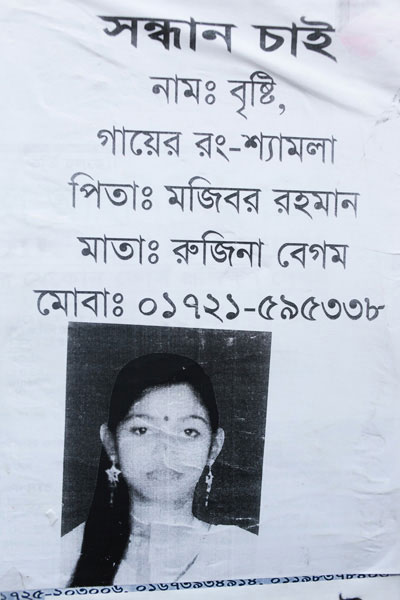 সন্ধান চাই
নামঃ বৃষ্টি,
গায়ের রং-শ্যামলা
পিতাঃ মজিবর রহমান
মাতাঃ রুজিনা বেগম
মোবাঃ ০১৭২১-৫৯৫৩৩৮